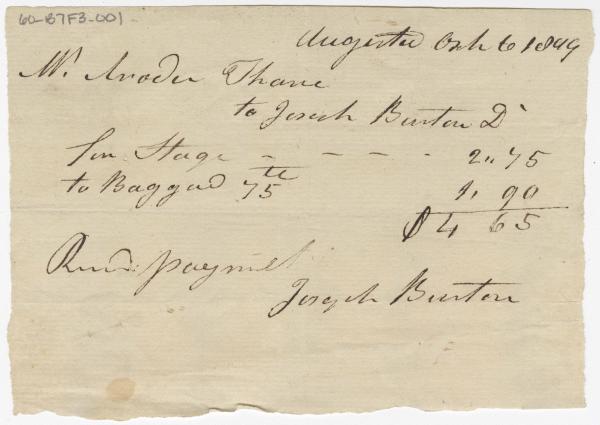 60-B7F3-001
Augusta Oct 6 1849
Mr. Thane
to Joseph Burton Dr
for Stage - - - - 2,, 75
to Baggad 75 tt 1,, 90
$ 4 65
Recd. payment
Joseph Burton